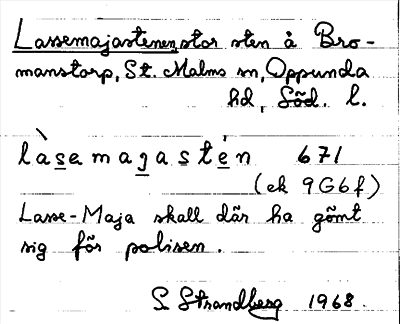 Lassemajastenen, stor sten å Bro-
manstorp, St. Malms sn, Oppunda
hd, Söd. l.
làsemajastén 671
(ek 9G6f)
Lasse-Maja skall där ha gömt
sig för polisen.
S. Strandberg 1968.